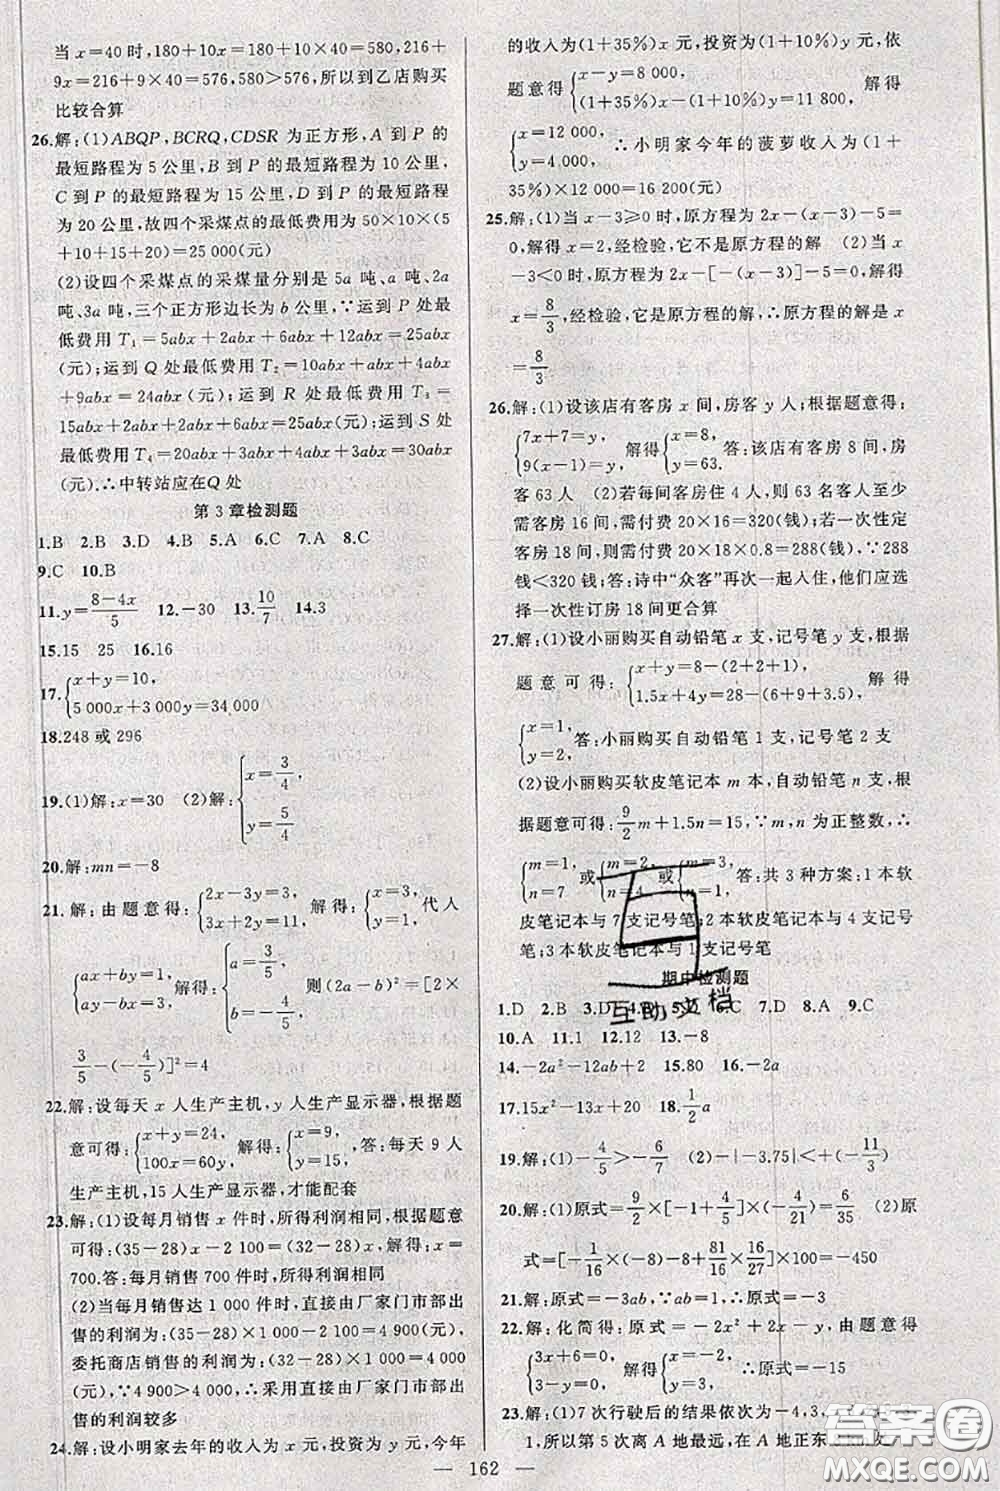 当 x=40 时,180+10x=180+10×40=580,216+
9x=216+9×40=576,580>576,所以到乙店购买
比较合算
26.解:(1)ABQP,BCRQ,CDSR 为正方形,A 到 P 的
最短路程为 5 公里,B 到 P 的最短路程为 10 公里,
C 到 P 的最短路程为 15 公里,D 到 P 的最短路程
为 20 公里,故四个采煤点的最低费用为 50×10×(5
+10+15+20)=25 000(元)
(2)设四个采煤点的采煤量分别是 5a 吨、a 吨、2a
吨、3a 吨,三个正方形边长为 b 公里,∵运到 P 处
最低费用 T₁=5abx+2abx+6abx+12abx=25abx
(元);运到 Q 处最低费用 T₂=10abx+abx+4abx
+9abx=24abx(元);运到 R 处最低费用 T₃=
15abx+2abx+2abx+6abx=25abx(元);运到 S 处
最低费用 T₄=20abx+3abx+4abx+3abx=30abx
(元).∴中转站应在 Q 处
第 3 章检测题
1.B 2.B 3.D 4.B 5.A 6.C 7.A 8.C
9.C 10.B
11.y=(8-4x)/5 12.-30 13.10/7 14.3
15.15 25 16.16
17.{x+y=10,
5 000x+3 000y=34 000
18.248 或 296
19.(1)解:x=30 (2)解:{x=3/4
y=5/4
20.解:mn=-8
21.解:由题意得:{2x-3y=3, 3x+2y=11 解得:{x=3, y=1, 代入
{ax+by=1, ay-bx=3 解得:{a=3/5 b=-4/5 则(2a-b)²=[2×
3/5-(-4/5)]²=4
22.解:设每天 x 人生产主机,y 人生产显示器,根据题
意可得:{x+y=24, 100x=60y, 解得:{x=9, y=15, 答:每天 9 人
生产主机,15 人生产显示器,才能配套
23.解:(1)设每月销售 x 件时,所得利润相同,根据题意
可得:(35-28)x-2 100=(32-28)x,解得:x=
700.答:每月销售 700 件时,所得利润相同
(2)当每月销售达 1 000 件时,直接由厂家门市部出
售的利润为:(35-28)×1 000-2 100=4 900(元),
委托商店销售的利润为:(32-28)×1 000=4 000
(元),∵4 900>4 000,∴采用直接由厂家门市部出
售的利润较多
24.解:设小明家去年的收入为 x 元,投资为 y 元,今年
的收入为(1+35%)x 元,投资为(1+10%)y 元,依
题意得{x-y=8 000, (1+35%)x-(1+10%)y=11 800, 解得
{x=12 000, y=4.000, ∴小明家今年的菠萝收入为(1+
35%)×12 000=16 200(元)
25.解:(1)当 x-3≥0 时,原方程为 2x-(x-3)-5=
0,解得 x=2,经检验,它不是原方程的解 (2)当 x
-3<0 时,原方程为 2x-[-(x-3)]-5=0,解得
x=8/3,经检验,它是原方程的解,∴原方程的解是 x
=8/3
26.解:(1)设该店有客房 x 间,房客 y 人;根据题意得:
{7x+7=y, 9(x-1)=y, 解得{x=8, y=63. 答:该店有客房 8 间,房
客 63 人 (2)若每间客房住 4 人,则 63 名客人至少
需客房 16 间,需付费 20×16=320(钱);若一次性定
客房 18 间,则需付费 20×18×0.8=288(钱),∵288
钱<320 钱;答:诗中“众客”再次一起入住,他们应选
择一次性订房 18 间更合算
27.解:(1)设小丽购买自动铅笔 x 支,记号笔 y 支,根据
题意可得:{x+y=8-(2+2+1), 1.5x+4y=28-(6+9+5), 解得
{x=1, y=2, 答:小丽购买自动铅笔 1 支,记号笔 2 支
(2)设小丽购买软皮笔记本 m 本,自动铅笔 n 支,根
据题意可得:9/2m+1.5n=15,∵m,n 为正整数,∴
{m=1, n=7 或{m=2, n=4 或{m=3, n=1, 答:共 3 种方案:1 本软
皮笔记本与 7 支记号笔;2 本软皮笔记本与 4 支记号
笔;3 本软皮笔记本与 1 支记号笔
期中检测题
1.D 2.B 3.D 7.D 8.A 9.C
10.A 11.1 12.12 13.-8
14.-2a²-12ab+2 15.80 16.-2a
17.15x²-13x+20 18.1/2a
19.解:(1)-4/5>-6/7 (2)-|-3.75|<-(-11/3)
20.解:(1)原式=9/2×[-1/9×4/9]×(-4/21)=6/35 (2)原
式=[-1/16×(-8)-8+81/16×16/27]×100=-450
21.解:原式=-3ab,∵ab=1,∴原式=-3
22.解:化简得:原式=-2x²+2x-y,由题意得
{3x+6=0, 3-y=0, 解得{x=-2, y=3, ∴原式=-15
23.解:(1)7 次行驶后的结果依次为-4,3,
1,所以第 5 次离 A 地最远,在 A 地正东
— 162 —
互助文档
答案圈
MXQE.COM